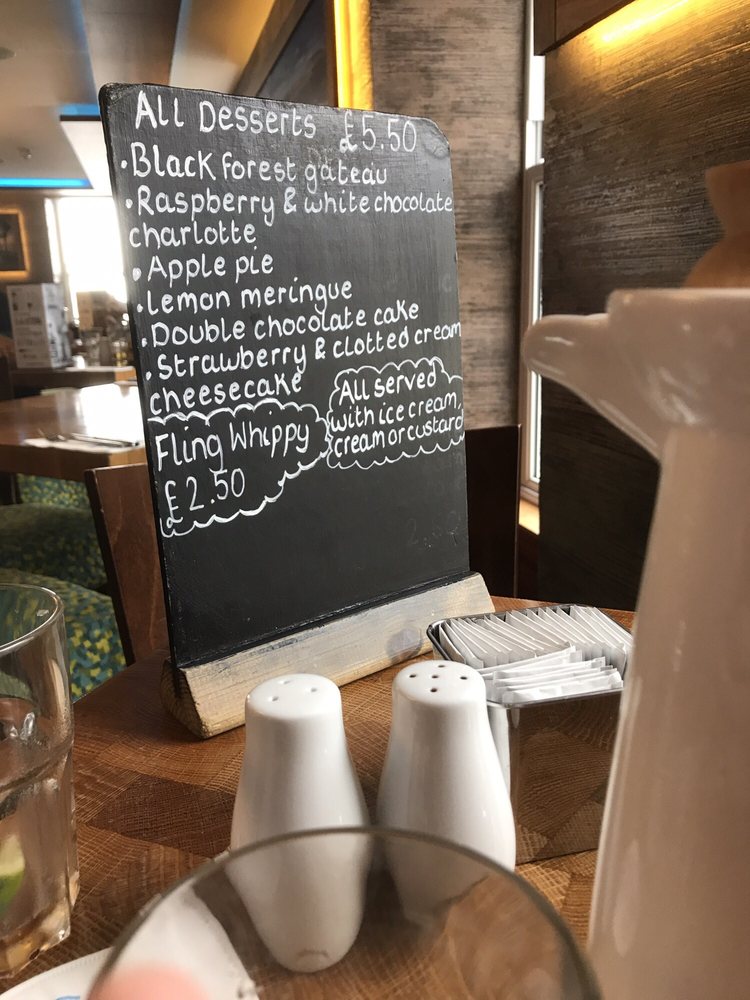 All Desserts £5.50
•Black forest gateau
•Raspberry & white chocolate
charlotte
•Apple pie
•Lemon meringue
•Double chocolate cake
•Strawberry & clotted cream
cheesecake
Fling Whippy
£2.50
All served
with ice cream,
cream or custard